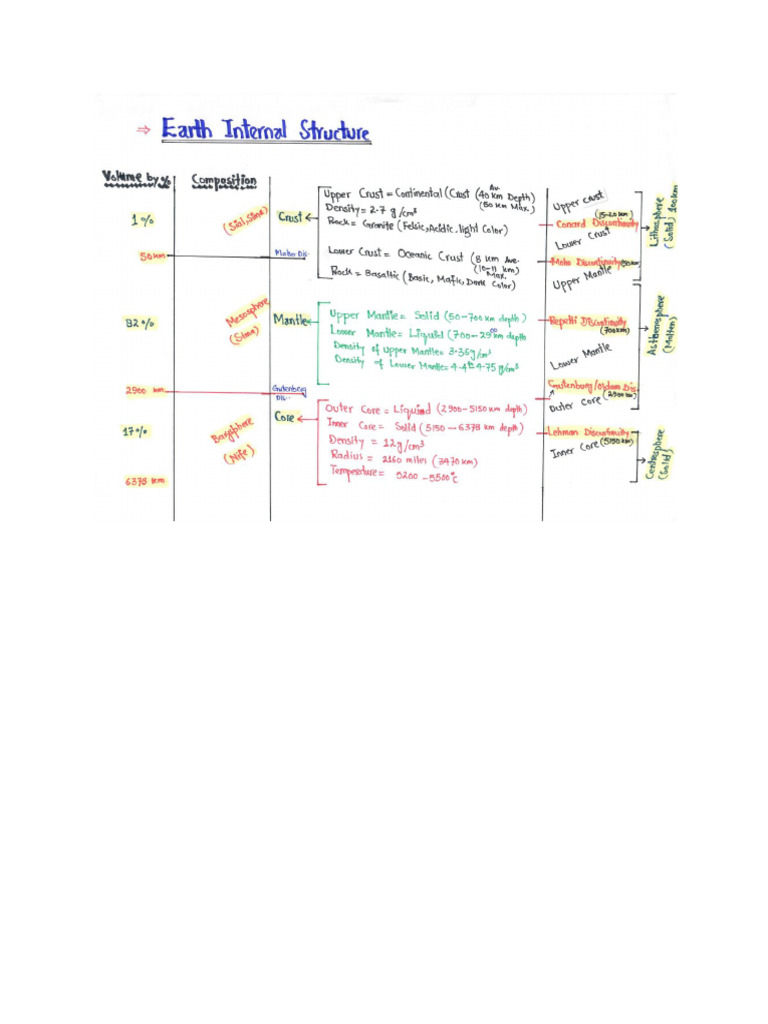 ⇒ Earth Internal Structure
Volume by %
Composition
1%
(Sial, Sima)
Crust
Upper Crust = Continental (Crust (40 km Depth)
Av.
(50 km Max.)
Density = 2.7 g/cm³
Rock = Granite (Felsic, Acidic, light Color)
Upper crust
(15-20 km)
Conard Discontinuity
Lower Crust
Lithosphere
(Solid) 100km
50 km
Moho Dis.
Lower Crust = Oceanic Crust (8 km Ave.
(10-11 km)
Max.
Rock = Basaltic (Basic, Mafic, Dark Color)
Moho Discontinuity (50 km)
Upper Mantle
82%
Mesosphere
(Sima)
Mantle
Upper Mantle = Solid (50-700 km depth)
Lower Mantle = Liquid (700-2900 km depth
Density of Upper Mantle = 3.35 g/cm³
Density of Lower Mantle = 4.4 4.75 g/cm³
Repetti Discontinuity
(700km)
Lower Mantle
Asthenosphere
(Molten)
2900 km
Gutenberg
Dis.
Gutenburg/Oldham Dis.
(2900 km)
Outer Core
17%
Barysphere
(Nife)
Core
Outer Core = Liquid (2900-5150 km depth)
Inner Core = Solid (5150-6378 km depth)
Density = 12 g/cm³
Radius = 2160 miles (3470 km)
Temperature = 5200-5500°C
Lehman Discontinuity
(5150 km)
Inner Core
Centrosphere
(Solid)
6378 km